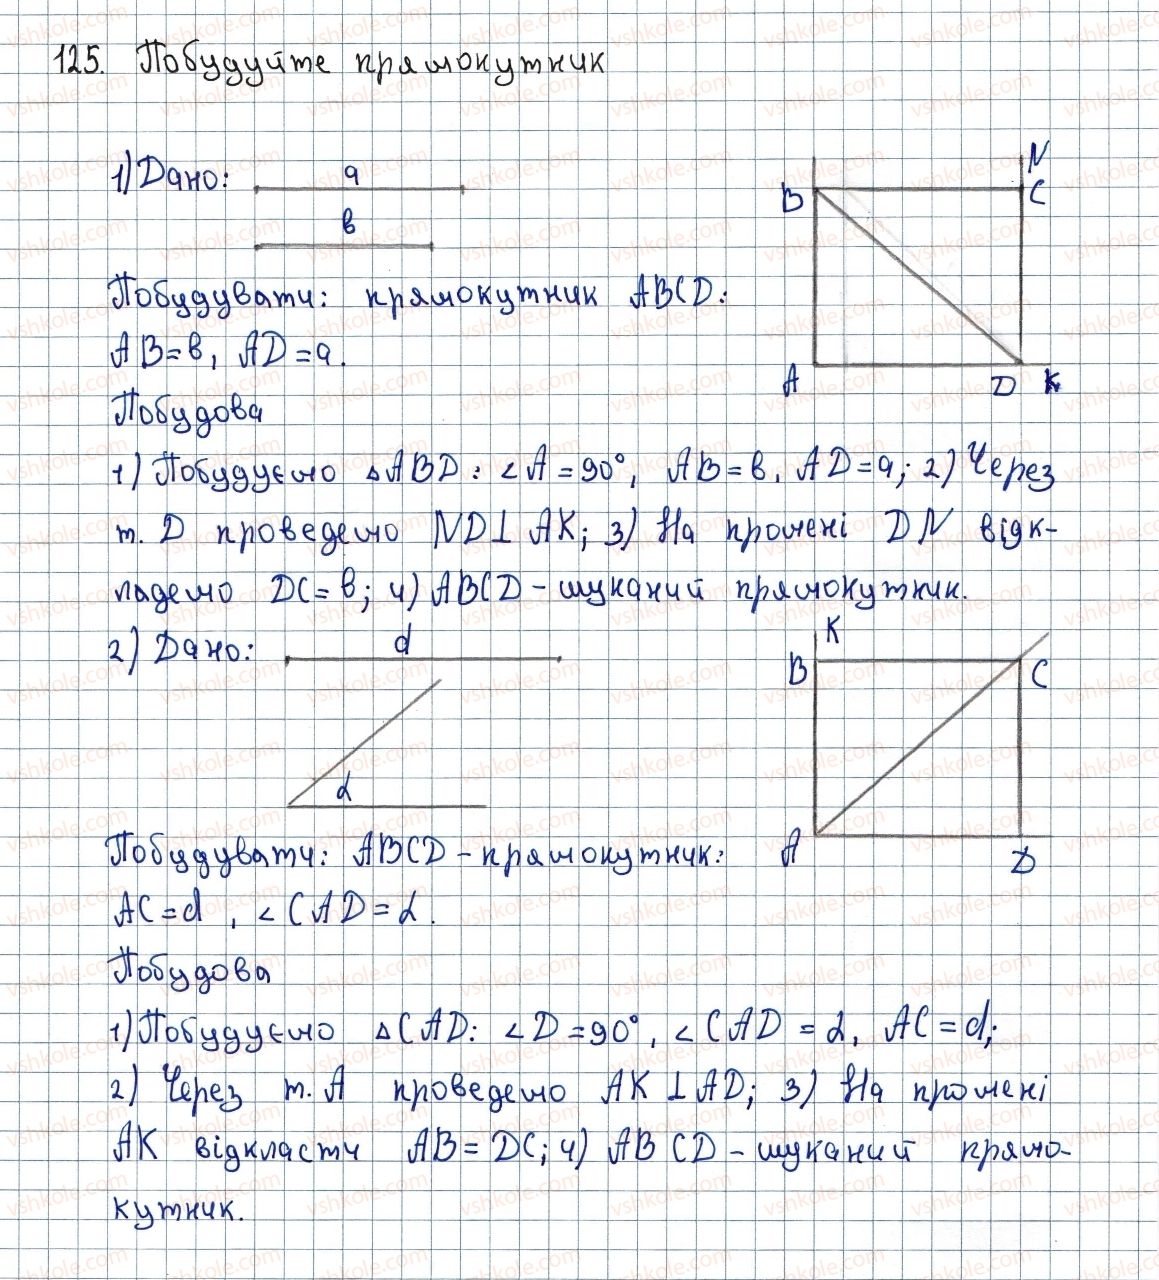 125. Побудуйте прямокутник
1) Дано: a
в
B N C
A D K
Побудувати: прямокутник ABCD:
AB=в, AD=a.
Побудова
1) Побудуємо △ABD: ∠A=90°, AB=в, AD=a; 2) Через
т. D проведемо ND⊥AK; 3) На промені DN відк-
ладемо DC=в; 4) ABCD - шуканий прямокутник.
2) Дано: d
α
K B C
A D
Побудувати: ABCD - прямокутник:
AC=d, ∠CAD=α.
Побудова
1) Побудуємо △CAD: ∠D=90°, ∠CAD=α, AC=d;
2) Через т. A проведемо AK⊥AD; 3) На промені
AK відкласти AB=DC; 4) ABCD - шуканий прямо-
кутник.
vshkole.com